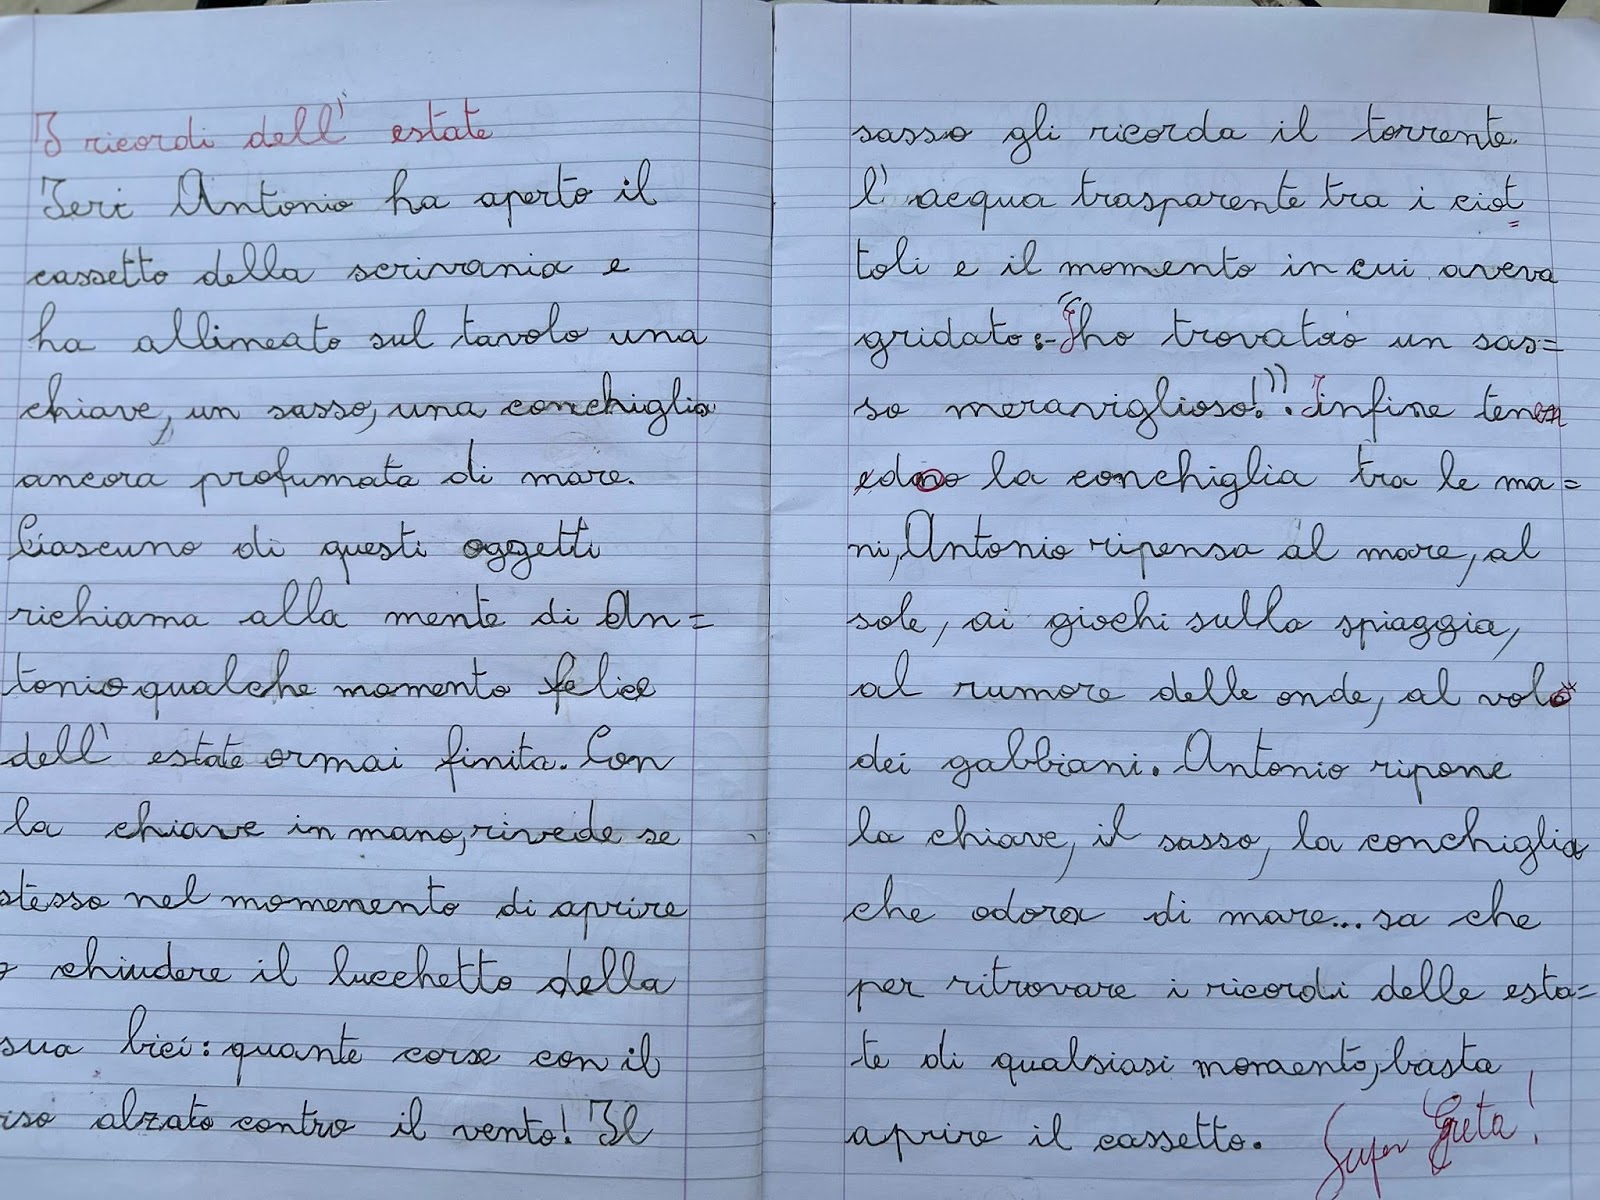 I ricordi dell' estate
Ieri Antonio ha aperto il
cassetto della scrivania e
ha allineato sul tavolo una
chiave, un sasso, una conchiglia
ancora profumata di mare.
Ciascuno di questi oggetti
richiama alla mente di An=
tonio qualche momento felice
dell' estate ormai finita. Con
la chiave in mano, rivede se
stesso nel momenento di aprire
o chiudere il lucchetto della
sua bici: quante corse con il
viso alzato contro il vento! Il
sasso gli ricorda il torrente.
l' acqua trasparente tra i ciot
toli e il momento in cui aveva
gridato:-"ho trovato un sas=
so meraviglioso!". Infine tenen
do la conchiglia tra le ma=
ni, Antonio ripensa al mare, al
sole, ai giochi sulla spiaggia,
al rumore delle onde, al volo
dei gabbiani. Antonio ripone
la chiave, il sasso, la conchiglia
che odora di mare... sa che
per ritrovare i ricordi delle esta=
te di qualsiasi momento, basta
aprire il cassetto.
Super Greta!